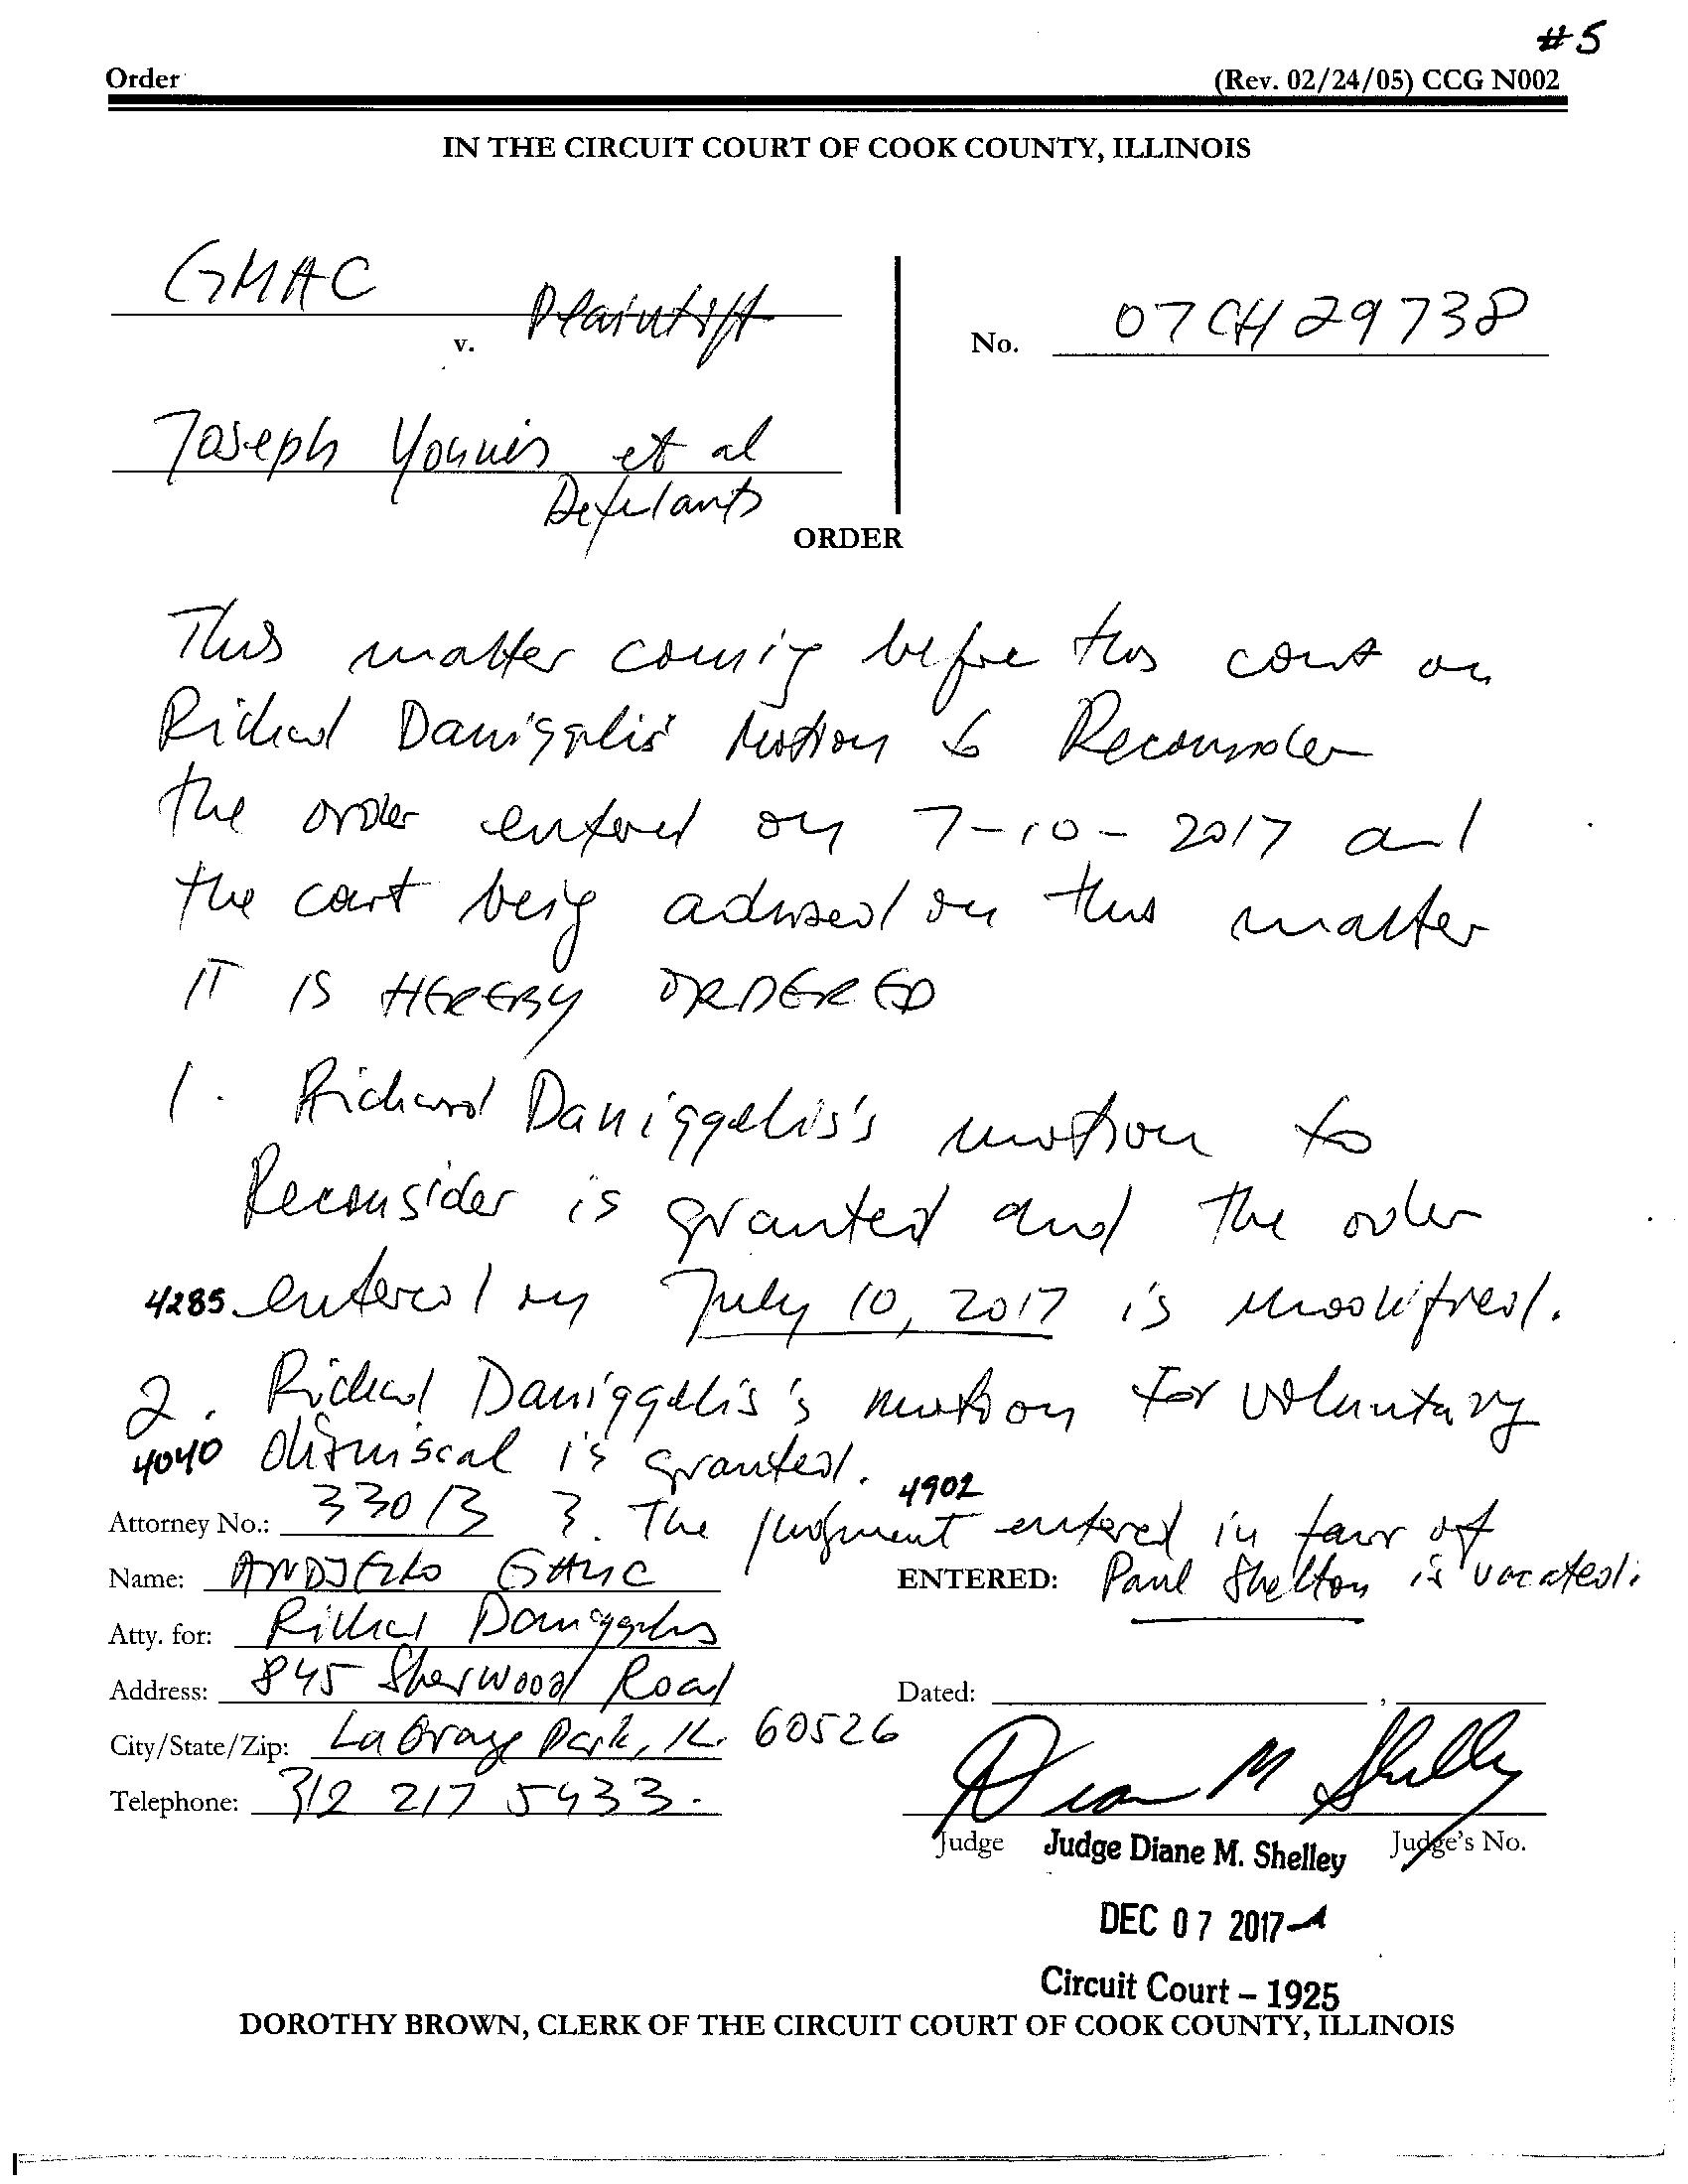 #5
Order (Rev. 02/24/05) CCG N002
IN THE CIRCUIT COURT OF COOK COUNTY, ILLINOIS
GMAC
Plaintiff
v.
No. 07 CH 29738
Joseph Younis et al
Defendants
ORDER
This matter coming before this court on
Richard Daniggelis' Motion to Reconsider
the order entered on 7-10-2017 and
the court being advised on this matter
IT IS HEREBY ORDERED
1. Richard Daniggelis's motion to
Reconsider is granted and the order
4285 entered on July 10, 2017 is modified.
2. Richard Daniggelis's motion for voluntary
4040 dismiscal is granted. 4902
3. The judgment entered in favor of
Paul Shelton is vacated.
Attorney No.: 33013
Name: ANDJELKO GALIC
ENTERED:
Atty. for: Richard Daniggelis
Address: 845 Sherwood Road
Dated: ,
City/State/Zip: LaGrange Park, IL. 60526
Telephone: 312 217 5433.
Diane M Shelley
Judge Judge's No.
Judge Diane M. Shelley
DEC 07 2017
Circuit Court – 1925
DOROTHY BROWN, CLERK OF THE CIRCUIT COURT OF COOK COUNTY, ILLINOIS